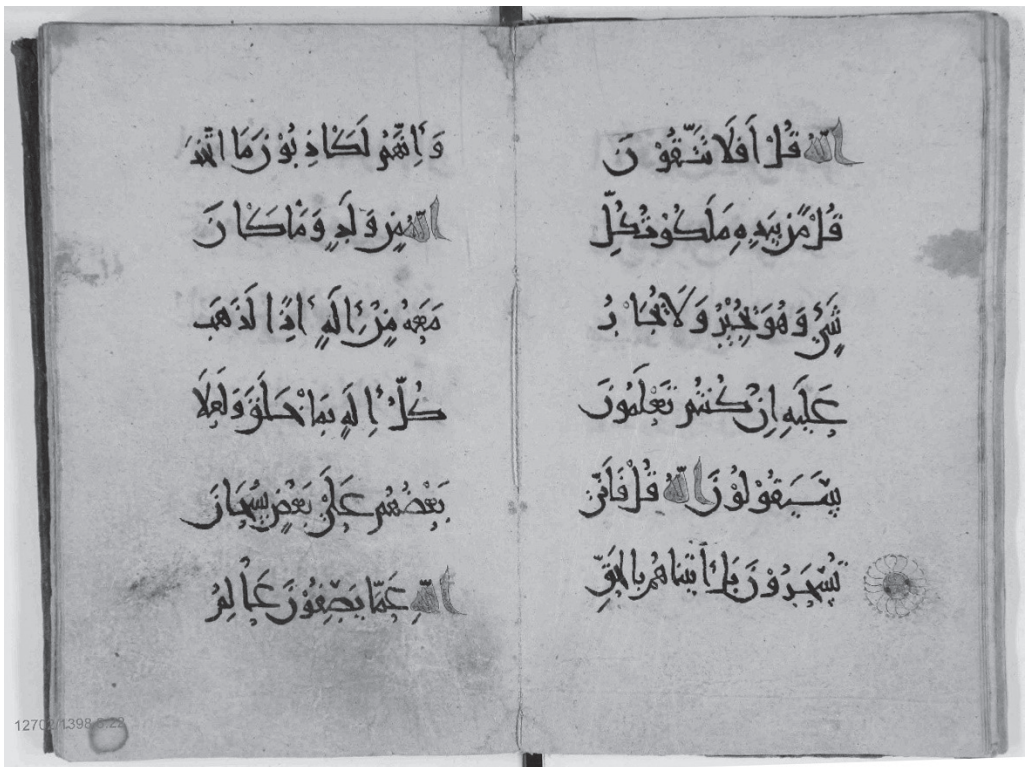 اللَّهُ قُلْ أَفَلَا تَتَّقُوْنَ
قُلْ مَنْ بِيَدِهِ مَلَكُوْتُ كُلِّ
شَيْءٍ وَهُوَ يُجِيْرُ وَلَا يُجَارُ
عَلَيْهِ إِنْ كُنْتُمْ تَعْلَمُونَ
سَيَقُوْلُوْنَ اللَّهُ قُلْ فَأَنَّى
تُسْحَرُوْنَ بَلْ أَتَيْنَاهُمْ بِالْحَقِّ
وَإِنَّهُمْ لَكَاذِبُوْنَ مَا اتَّخَذَ
اللَّهُ مِنْ وَلَدٍ وَمَا كَانَ
مَعَهُ مِنْ إِلَهٍ إِذًا لَذَهَبَ
كُلُّ إِلَهٍ بِمَا خَلَقَ وَلَعَلَا
بَعْضُهُمْ عَلَى بَعْضٍ سُبْحَانَ
اللَّهِ عَمَّا يَصِفُوْنَ عَالِمُ
12702/1398